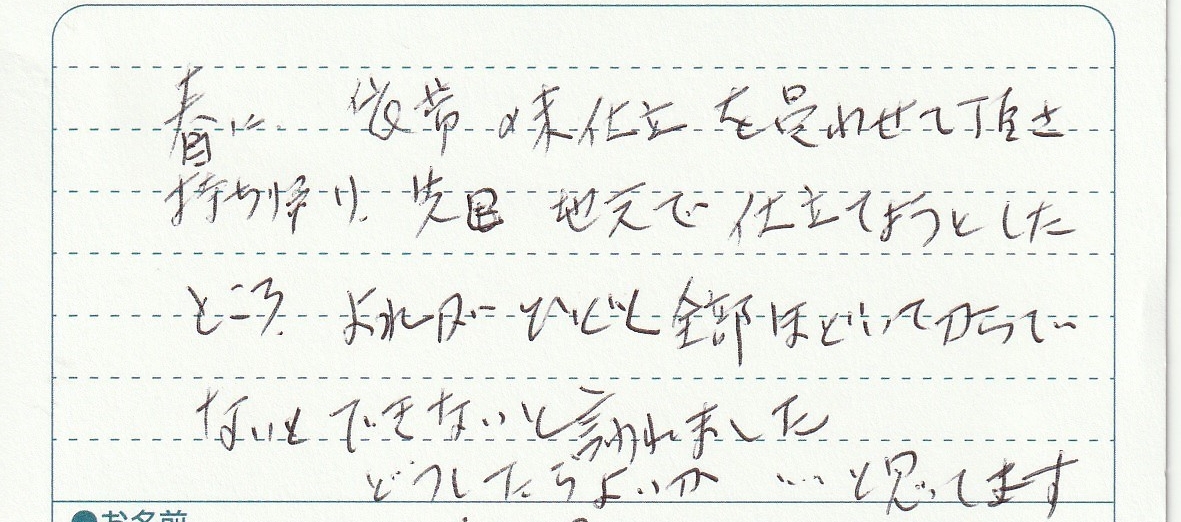 春に 袋帯の未仕立を買わせて頂き
持ち帰り、先日 地元で仕立てようとした
ところ、よれが ひどく全部ほどいてからで
ないと できないと言われました
どうしたらよいか …と思ってます
●お名前